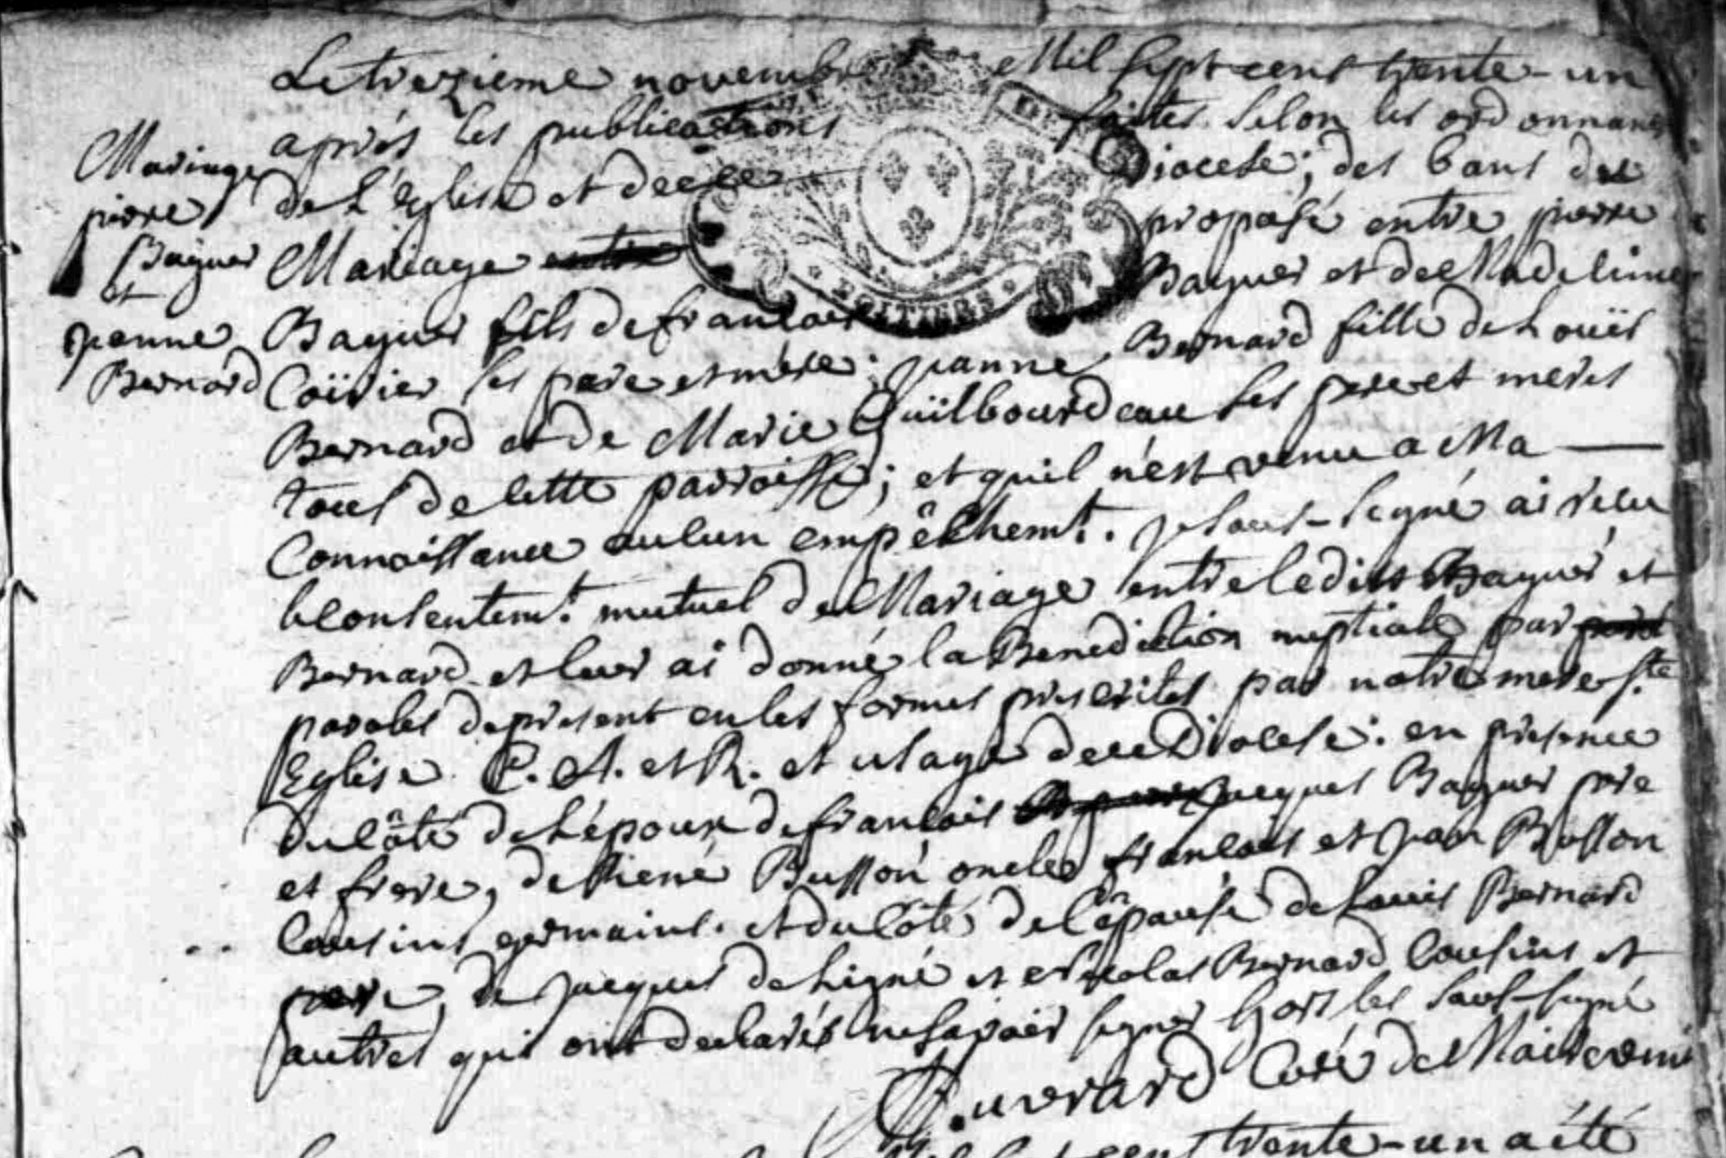 Le treizieme novembre Mil sept cent trente-un
après les publications faites selon les ordonnances
Mariage
de L'eglise et de ce Diocese; des bans de
pierre
Mariage entre proposé entre pierre
Baguer
et
Baguer fils de francois Baguer et de Madeleine
jeanne
Coirier ses pere et mere; jeanne Bernard fille de Louïs
Bernard
POITIERS
Bernard et de Marie Guilbourdeau ses pere et meres
tous de cette parroisse; et qu'il n'est venu a Ma
Connoissance aucun empêchemt. je sous-signé ai recu
le consentemt. mutuel de Mariage entre ledits Baguer et
Bernard et leur ai donné la Benediction nuptiale par
paroles de present en les formes prescrites par notre mere ste
Eglise C. A. et R. et usage de ce Diocese: en presence
du côté de L'époux de francois Jacques Baguer pere
et frere, de René Busson oncle francois et jean Busson
Cousins germains. et du Côté de L'épouse de Louis Bernard
pere, de jacques de Ligné et Nicolas Bernard Cousins et
autres qui ont declarés ne savoir signer hors les sous-signé
Ouvrard Curé de Mairevent
trente-un a été